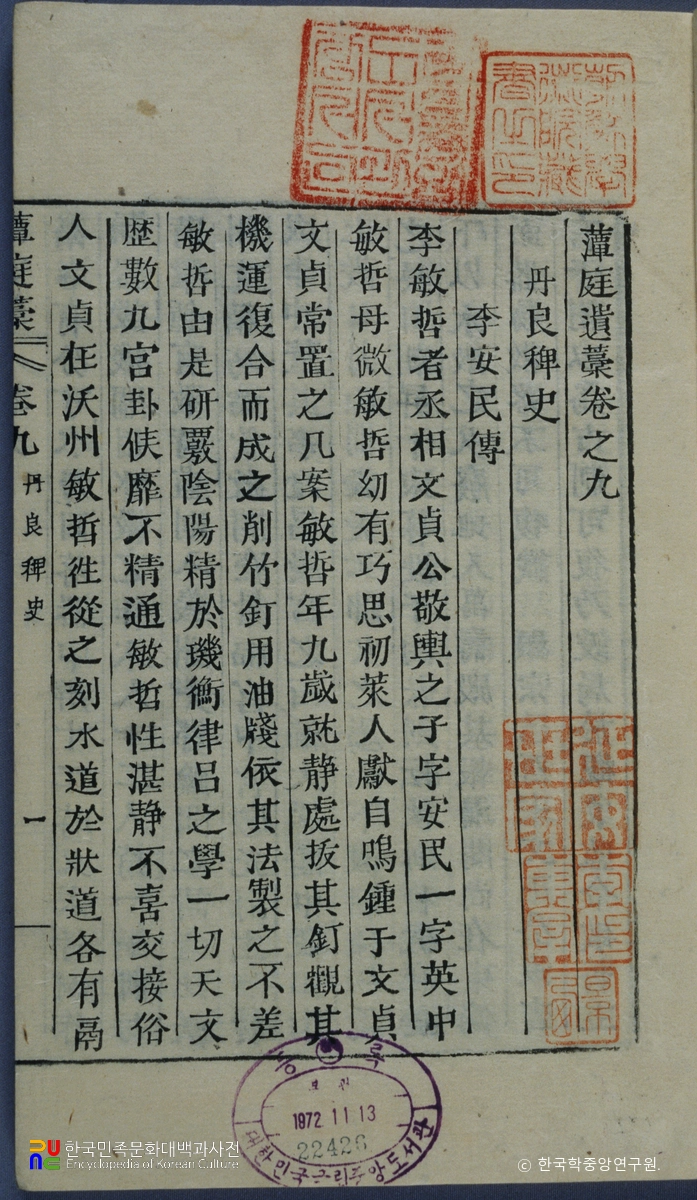 藫庭遺藁卷之九
丹良稗史
李安民傳
李敏哲者丞相文貞公敬輿之子字安民一字英中
敏哲母微敏哲幼有巧思初萊人獻自鳴鍾于文貞
文貞常置之几案敏哲年九歲就静處拔其釘觀其
機運復合而成之削竹釘用油牋依其法製之不差
敏哲由是研覈陰陽精於璣衡律呂之學一切天文
歷數九宮卦候靡不精通敏哲性湛静不喜交接俗
人文貞在沃州敏哲徃從之刻水道於狀道各有鬲
藫庭藁
卷九
丹良稗史
一
1972 11 13
22426
한국민족문화대백과사전
Encyclopedia of Korean Culture
© 한국학중앙연구원.